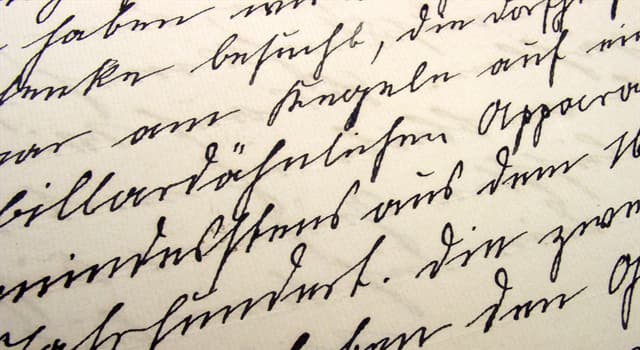 haben wir
besucht, die dorf
war am Kegeln auf ein
billardähnlichen Appara
mindestens aus dem 16
Jahrhundert. Die zwe
haben den